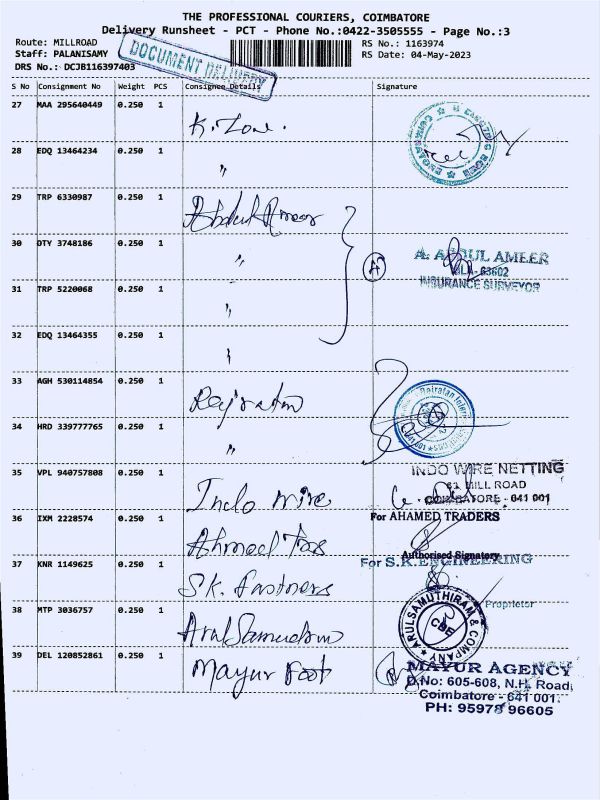 THE PROFESSIONAL COURIERS, COIMBATORE
Delivery Runsheet - PCT - Phone No.:0422-3505555 - Page No.:3
Route: MILLROAD
RS No.: 1163974
Staff: PALANISAMY
RS Date: 04-May-2023
DRS No.: DCJB116397403
DOCUMENT DELIVERY
S No Consignment No Weight PCS Consignee Details Signature
27 MAA 295640449 0.250 1 K. Zone.
28 EDQ 13464234 0.250 1 "
29 TRP 6330987 0.250 1 Abdul Ameer
30 OTY 3748186 0.250 1 "
A
A. ABDUL AMEER
SLA- 63602
INSURANCE SURVEYOR
31 TRP 5220068 0.250 1 "
32 EDQ 13464355 0.250 1 "
33 AGH 530114854 0.250 1
34 HRD 339777765 0.250 1 "
35 VPL 940757808 0.250 1 Indo wire
INDO WIRE NETTING
61 MILL ROAD
COIMBATORE - 641 001
36 IXM 2228574 0.250 1 Ahmed
For AHAMED TRADERS
Authorised Signatory
37 KNR 1149625 0.250 1 S.K.
For S.K.ENGINEERING
Proprietor
38 MTP 3036757 0.250 1
ARULSAMUTHIRAM & COMPANY
CBE
39 DEL 120852861 0.250 1 Mayur
MAYUR AGENCY
D.No: 605-608, N.H. Road,
Coimbatore - 641 001.
PH: 95978 96605